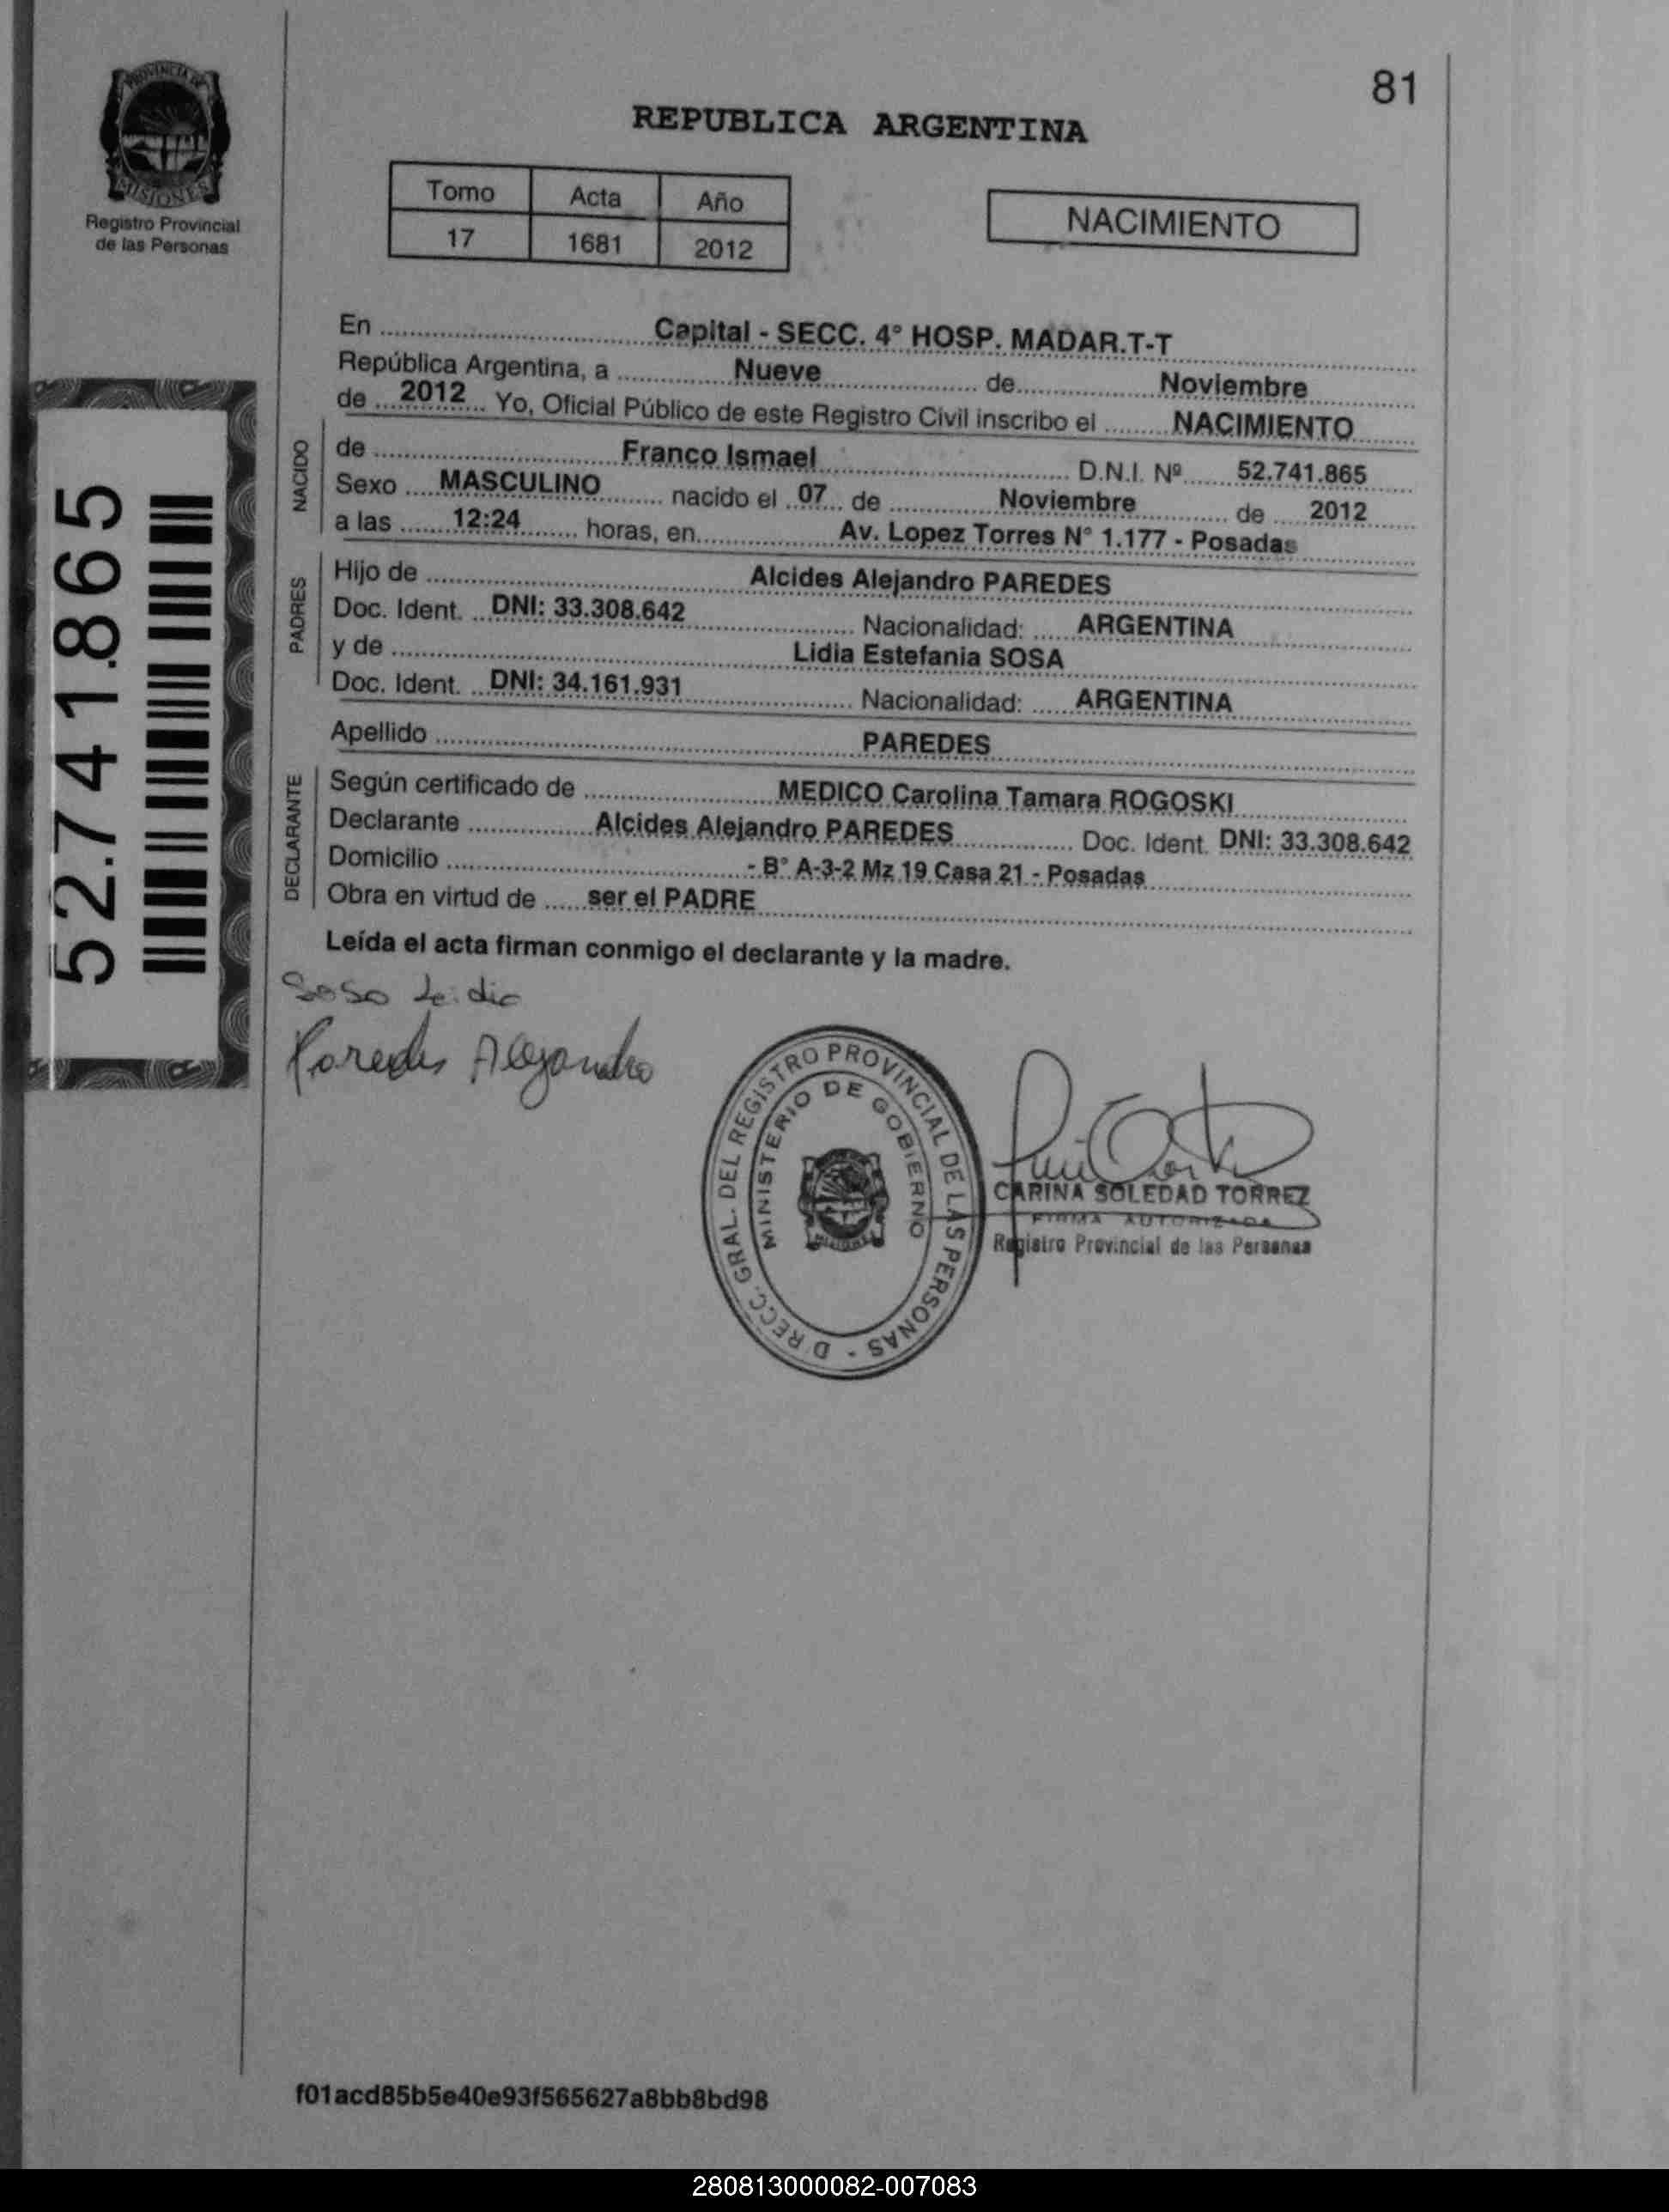 81
PROVINCIA DE
MISIONES
Registro Provincial
de las Personas
REPUBLICA ARGENTINA
Tomo Acta Año
17 1681 2012
NACIMIENTO
En Capital - SECC. 4° HOSP. MADAR.T-T
República Argentina, a Nueve de Noviembre
de 2012 Yo, Oficial Público de este Registro Civil inscribo el NACIMIENTO
NACIDO
de Franco Ismael D.N.I. Nº 52.741.865
Sexo MASCULINO nacido el 07 de Noviembre de 2012
a las 12:24 horas, en Av. Lopez Torres N° 1.177 - Posadas
PADRES
Hijo de Alcides Alejandro PAREDES
Doc. Ident. DNI: 33.308.642 Nacionalidad: ARGENTINA
y de Lidia Estefania SOSA
Doc. Ident. DNI: 34.161.931 Nacionalidad: ARGENTINA
Apellido PAREDES
DECLARANTE
Según certificado de MEDICO Carolina Tamara ROGOSKI
Declarante Alcides Alejandro PAREDES Doc. Ident. DNI: 33.308.642
Domicilio - B° A-3-2 Mz 19 Casa 21 - Posadas
Obra en virtud de ser el PADRE
Leída el acta firman conmigo el declarante y la madre.
52.741.865
Sosa Leidia
Paredes Alejandro
DIRECC. GRAL. DEL REGISTRO PROVINCIAL DE LAS PERSONAS -
MINISTERIO DE GOBIERNO
MISIONES
CARINA SOLEDAD TORREZ
FIRMA AUTORIZADA
Registro Provincial de las Personas
f01acd85b5e40e93f565627a8bb8bd98
280813000082-007083